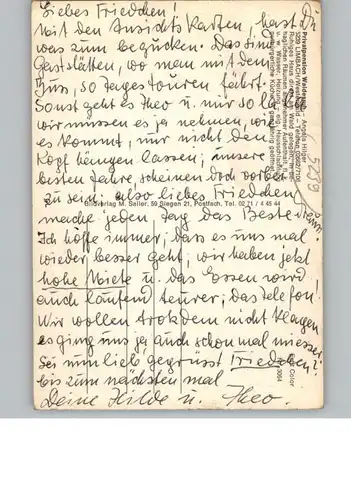 Liebes Friedchen!
Mit den Ansichtskarten, hast Du
was zum begucken. Das sind
Gaststätten, wo man mit dem
Bus, so tagestouren fährt.
Sonst geht es Theo u. mir so la la
wir müssen es ja nehmen, wie
es kommt, nur nicht den
Kopf hängen lassen; unsere
besten Jahre, scheinen doch vorbei
zu sein; also liebes Friedchen
mache jeden tag das Beste
Verlag M. Seiler, 59 Siegen 21, Postfach, Tel. 02 71 / 4 45 44
Ich hoffe immer, dass es uns mal
wieder besser geht; wir haben jetzt
hohe Miete u. das Essen wird
auch laufend teurer; das telefon!
Wir wollen trotzdem nicht klagen
es ging uns ja auch schon mal mieser!
Sei nun lieb gegrüsst Friedchen
bis zum nächsten mal
Deine Hilde u. Theo.
Privatpension Waldesruh
Angela Hilger
5239 LIMBACH/Westerwald
5239